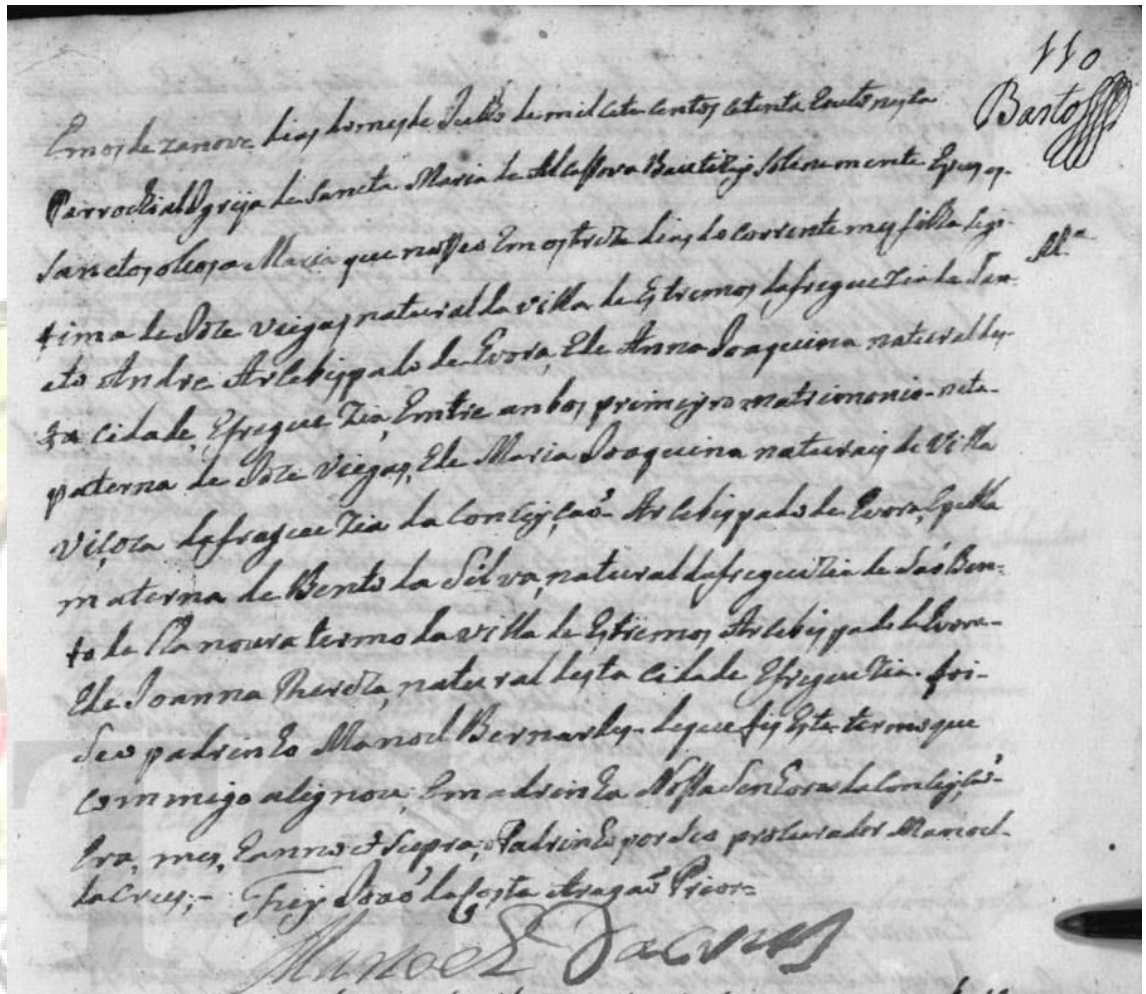 110
Bastos
Em os dezanove dias do mes de Julho de mil cete centos cetenta e outo nesta
Parrochial Igreija de Sancta Maria de Alcassova Bautizej solenemente e puz os
Sanctos oleos a Maria que nasseo em os treze dias do corrente mes filha legi-
M.ª
tima de Joze Viegas natural da villa de Estremos da freguezia de San-
cto Andre Arcebispado de Evora, e de Anna Joaquina natural des-
ta cidade, e freguezia, e entre anbos primejro matrimonio. neta
paterna de Joze Viegas, e de Maria Joaquina naturais de Villa
Viçoza da freguezia da Concejçaõ Arcebispado de Evora, e pella
materna de Bento da Silva, natural da freguezia de Saõ Ben-
to de Ana Loura termo da villa de Estremos Arcebispado de Evora
e de Joanna Thereza, natural desta cidade e freguezia. foi
seo padrinho Manoel Bernardes de que fis este termo que
commigo asignou; e madrinha Nossa Senhora da Concejçaõ
era, mes, e anno ut supra; o Padrinho por seo procurador Manoel
da Crus;- Frej Joaõ da Costa Aragaõ Prior
Manoel da Crus